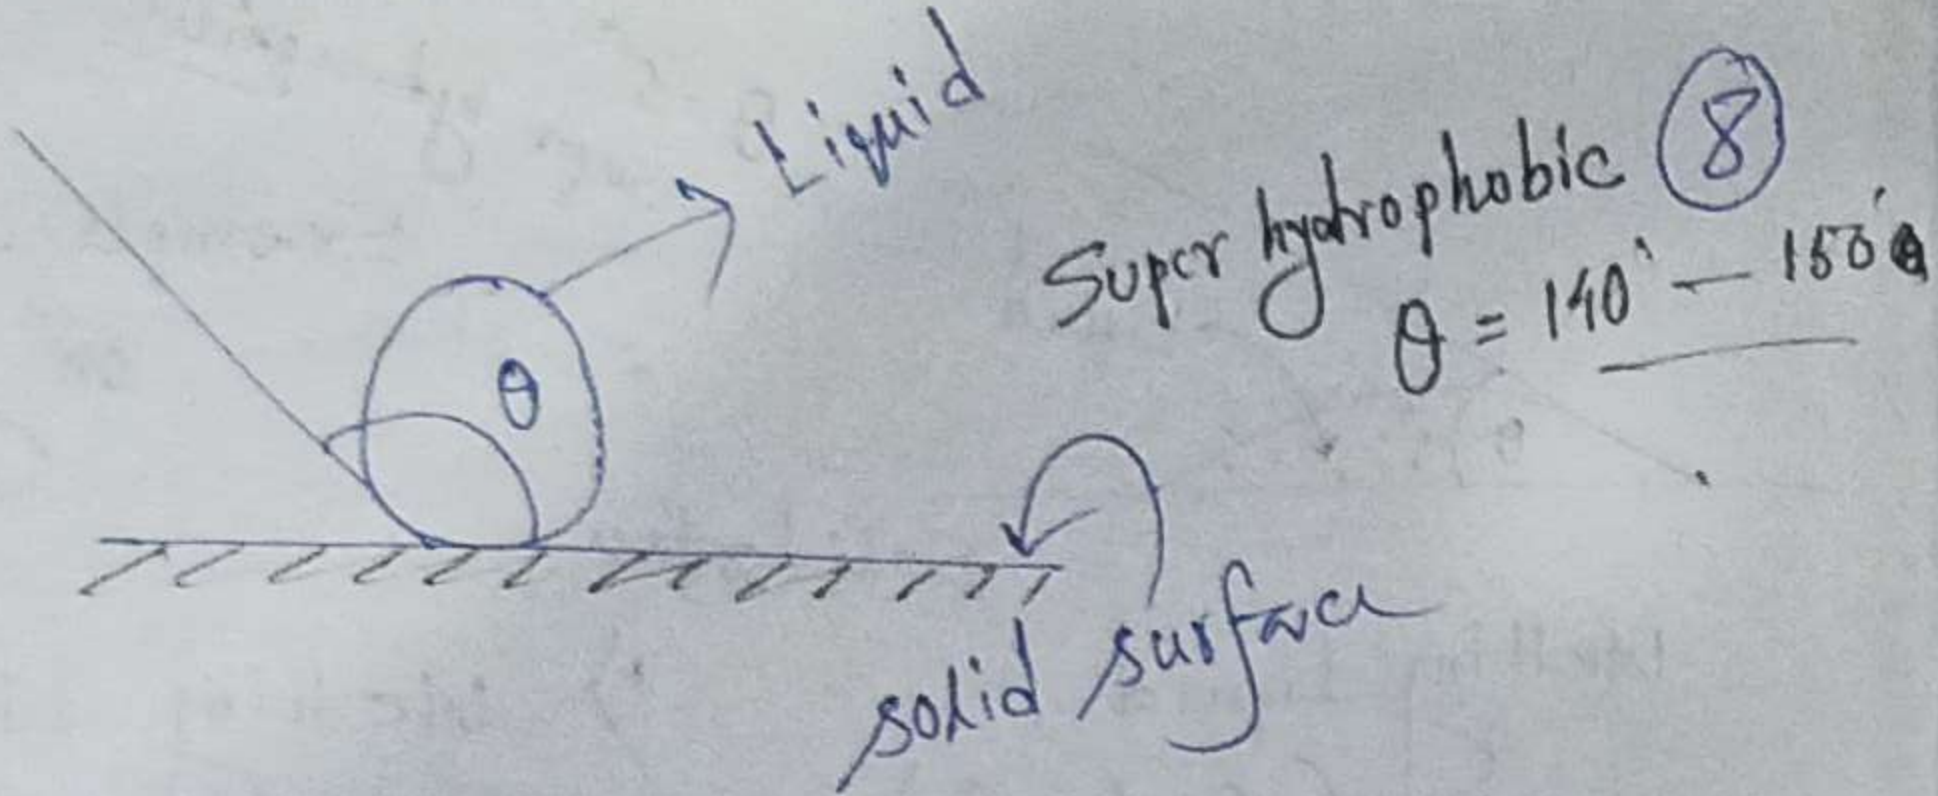 Liquid
Super hydrophobic 8
θ = 140° – 150°
θ
solid surface